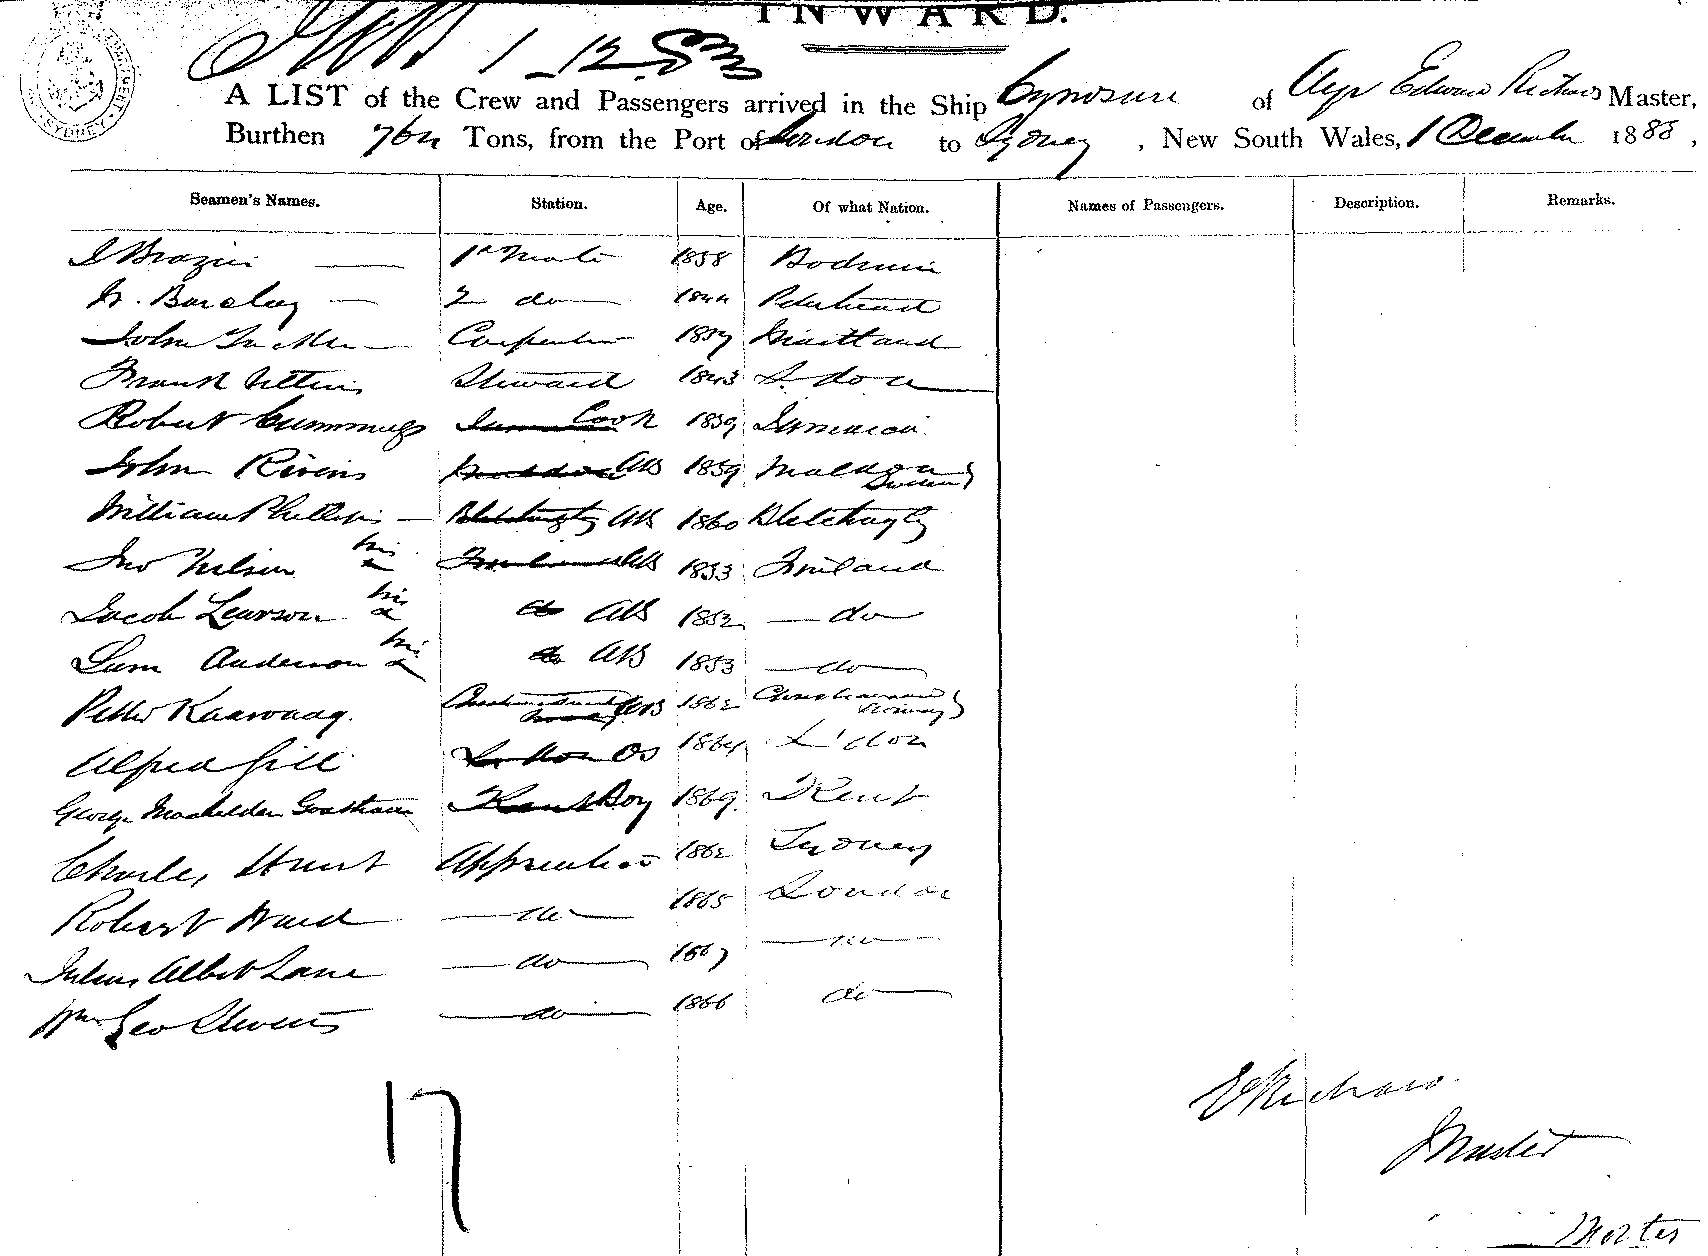 INWARD.
1-12-83
A LIST of the Crew and Passengers arrived in the Ship Cynosure of Ayr Edward Richards Master,
Burthen Tons, from the Port of London to Sydney, New South Wales, 1 December 1883,
Seamen's Names. Station. Age. Of what Nation. Names of Passengers. Description. Remarks.
1st Mate 1858 Bodmin
Barclay — 2 do 1844 Peterhead
John — Carpenter 1857 Maitland
Frank Steward 1843 L. don
Robert Cummings Cook 1859 Jamaica
John Rivers AB 1859
William Phillips — AB 1860 Bletchingly
Jno Nilson his x AB 1853 Finland
Jacob Lawson his x do AB 1852 — do
Sam Anderson his x do AB 1853 — do —
Petter AB 1862 Norway
Alfred Gill OS 1864 L'don
George Kent Boy 1869 Kent
Charles Hunt Apprentice 1862 Sydney
Robert Ward — do — 1865 London
Julius Albert Lane — do — 1867 — do —
Wm Geo Stevens — do — 1866 do —
17
E Richards
Master